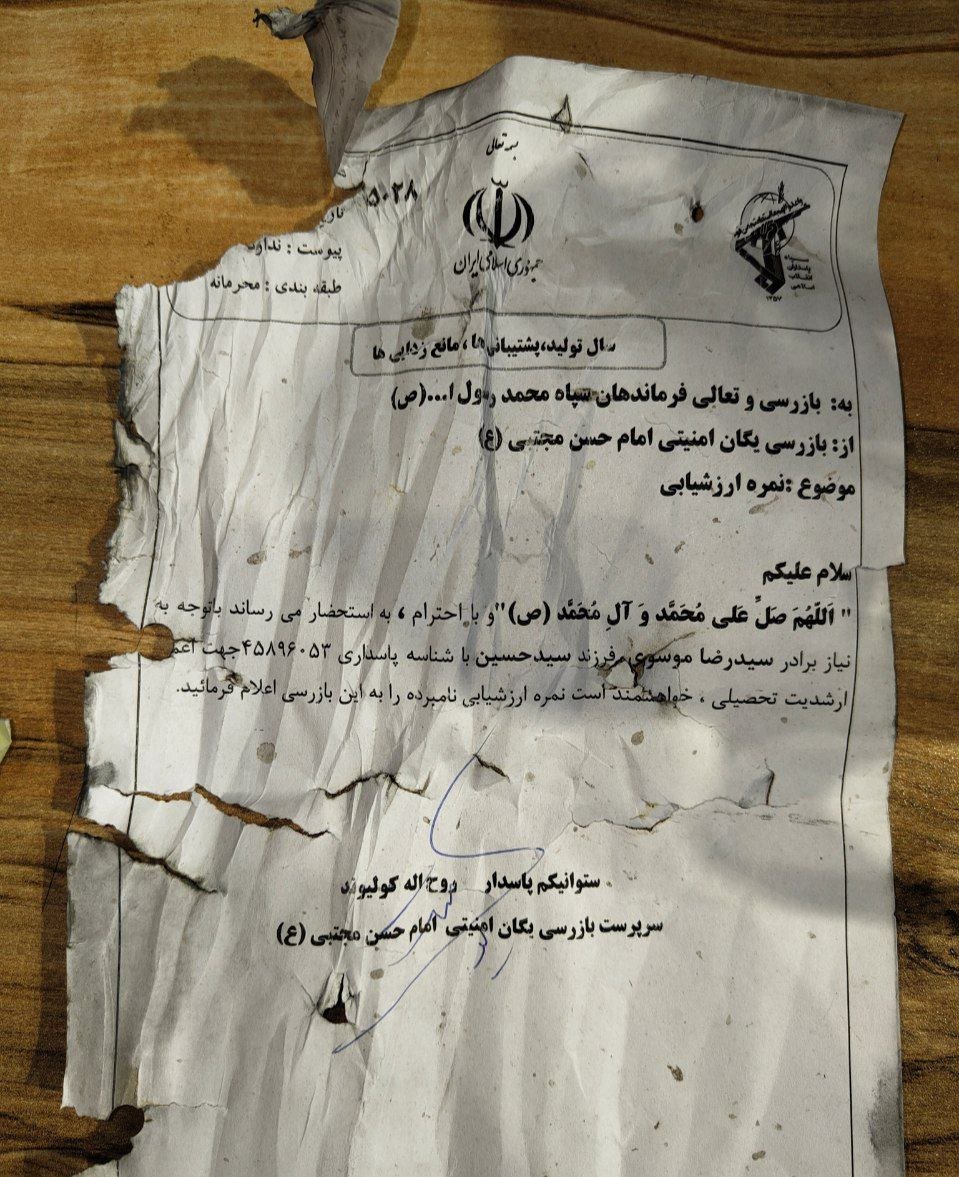 بسمه تعالی
۵۰۲۸
تاری
پیوست : ندارد
طبقه بندی : محرمانه
جمهوری اسلامی ایران
سپاه
پاسداران
انقلاب
اسلامی
۱۳۵۷
سال تولید،پشتیبانی‌ها ، مانع زدایی ها
به: بازرسی و تعالی فرماندهان سپاه محمد رسول ا...(ص)
از: بازرسی یگان امنیتی امام حسن مجتبی (ع)
موضوع :نمره ارزشیابی
سلام علیکم
" اَللّهُمَ صَلِّ عَلی مُحَمَّد وَ آلِ مُحَمَّد (ص)"و با احترام ، به استحضار می رساند باتوجه به
نیاز برادر سیدرضا موسوی فرزند سیدحسین با شناسه پاسداری ۴۵۸۹۶۰۵۳جهت اعم
ارشدیت تحصیلی ، خواهشمند است نمره ارزشیابی نامبرده را به این بازرسی اعلام فرمائید.
ستوانیکم پاسدار روح اله کولیوند
سرپرست بازرسی یگان امنیتی امام حسن مجتبی (ع)